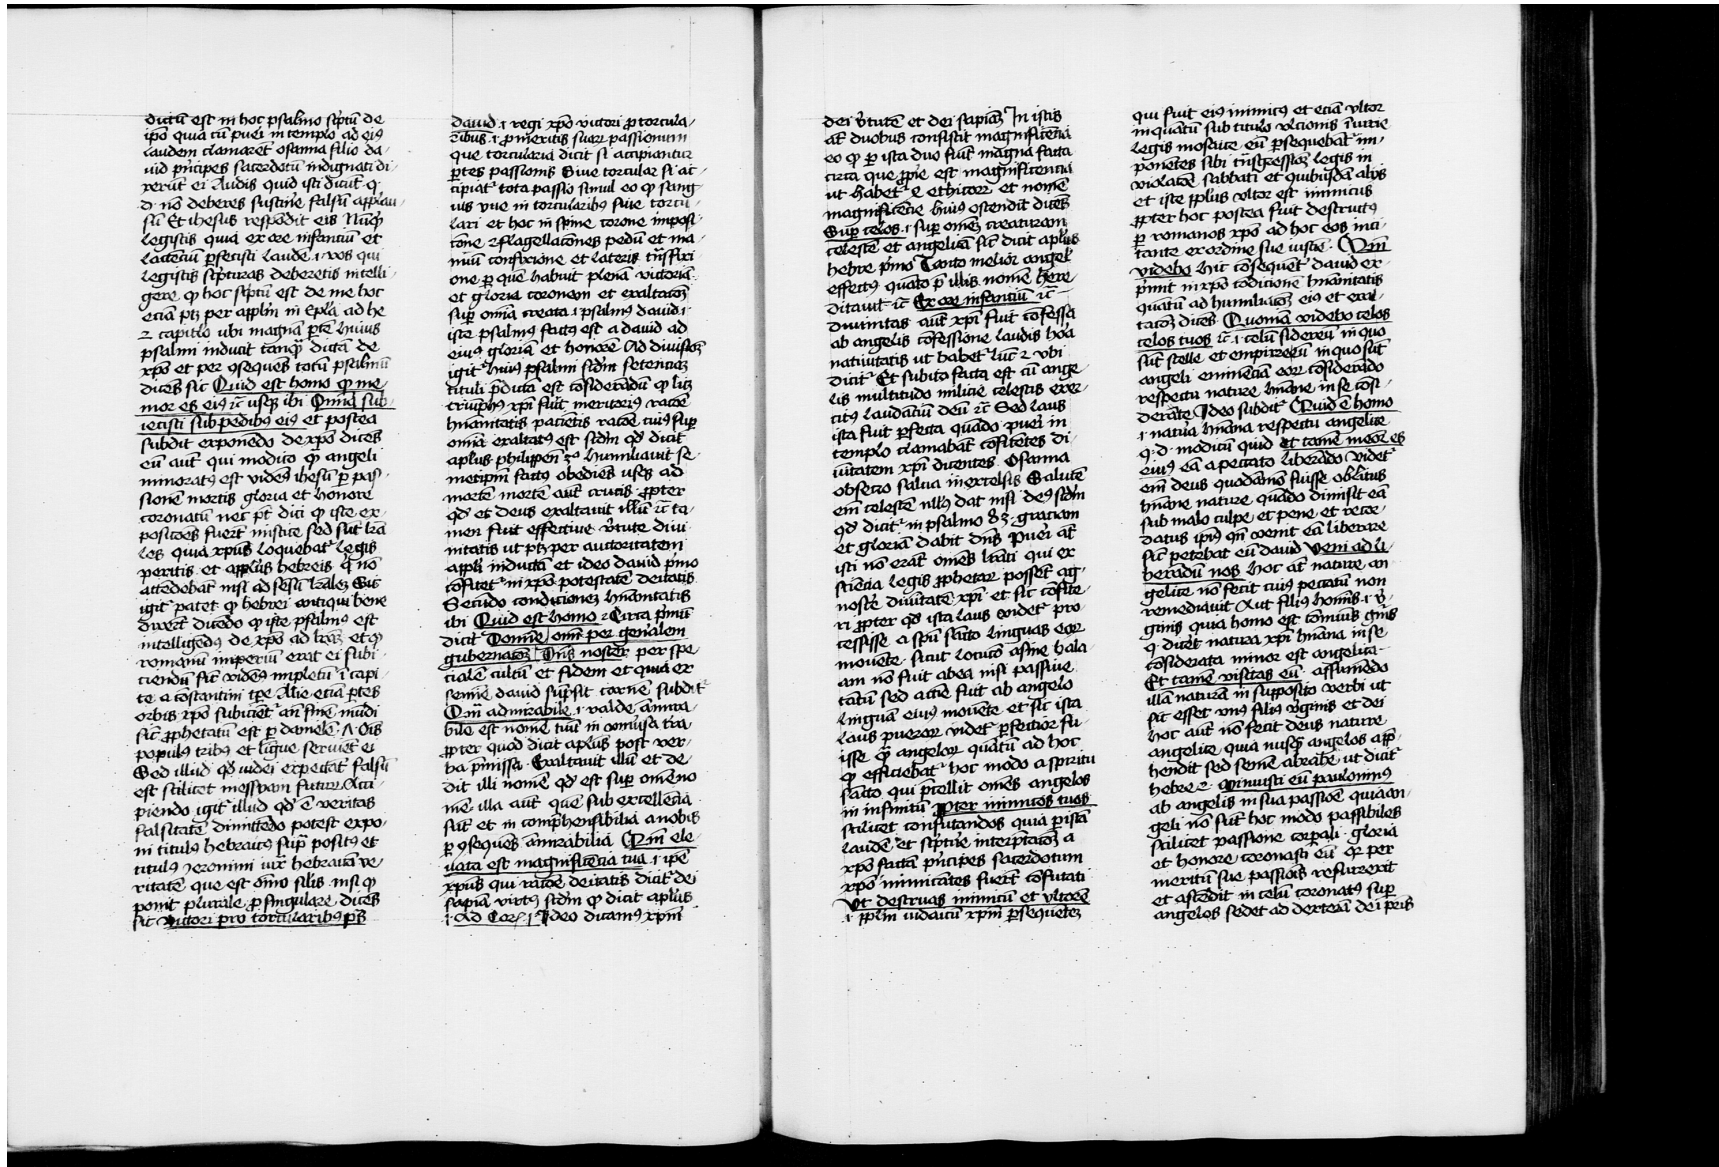 dictū est in hoc psalmo sc̄ptū de
ip̄o quia cū pueri in templo ad ei9
laudem clamarent osanna filio da-
uid p̄ncipes sacerdotū indignati di-
xerūt ei Audis quid isti dicūt q.
d. nō deberes sustinē falsū applau-
sū Et ihesus respōdit eis Nūq̄
legistis quia ex ore infanciū et
lactenciū perfecisti laudē .i. vos qui
legistis sc̄pturas deberetis intelli-
gere q̄ hoc sc̄ptū est de me hoc
eciā ptz per apl̄m in epl̄a ad he
2 capitlo vbi magnā ptē huius
psalmi inducit tanq̄ dictā de
xpō et per 9seques totū psalmū
dices sic Quid est homo q̄ me-
mor es ei9 &c̄ usq3 ibi Omīa sub-
iecisti sub pedib9 ei9 et postea
subdit exponēdo de xpō dicēs
eū aut qui modico q̄ angeli
minorat9 est videm9 ihesū p̄ pas-
sionē mortis gloria et honore
coronatū nec p̄t dici q̄ iste ex-
posicōes fuerīt mistice sed sūt lr̄a
les quia xpūs loquebat' legis
peritis et apl̄us hebreis q̄ nō
attēdebāt nisi ad sēsū lr̄alez Sic
igit' patet q̄ hebrei antiqui bene
dixert dicēdo q̄ iste psalm9 est
intelligēd9 de xpō ad lr̄az et q̄
romanū imperiū erat ei subi-
ciendū sic̄ videm9 impletū ī capi-
te a costantini tpe Alie eciā ptes
orbis xpō subicient' an̄ finē mūdi
sic̄ prophetatū est p̄ danielē .7. Oīs
popul9 trib9 et ligue seruiēt ei
Sed illud q̄d iudei expectāt falsū
est scilicet messyam futur Acci-
piendo igit' illud q̄d ē veritas
falsitatē dimittēdo potest expo-
ni titulus hebraic9 sup̄ posit9 et
titulus Jeronimi iux̄ hebraicā ve-
ritatē que est oīno silis nisi q̄
ponit plurale p̄ singulare dicēs
sic victori pro torcularib9 ps̄
dauid .i. regi xpō victori p̄ torcula-
ribus .i. p̄ meritis suar passionum
que torcularia dicit si accipiantur
ptes passionis Siue torcular si ac-
cipiat' tota passio simul eo q̄ sang-
uis vue in torcularibus siue torcu-
lari et hoc in spine corone imposi-
cōne & flagellacōnes pedū et ma-
nuū confixione et lateris trāsfixi-
one p̄ quē habuit plenā victoriā
et gloriā coronem et exaltacōz
sup̄ omīa creata .i. psalmus dauid .i.
iste psalm9 fact9 est a dauid ad
ei9 gloriā et honorē Ad diuisionz
igit' hui9 psalmi sc̄dm sētenciaz
tituli p̄dicta est cosiderādū q̄ licz
triumph9 xpī fuit meritori9 racōe
hūanitatis pacietis racōe cui9 sup̄
omīa exaltat9 est sc̄dm q̄d dicit
apl̄us philippen 2o humiliauit se-
metip̄m fact9 obediēs usq3 ad
mortē mortē aut crucis propter
q̄d et deus exaltauit illū &c̄ ta-
men fuit effectiue v̄tute diui-
nitatis ut ptz per auctoritatem
apl̄i inductā et ideo dauid p̄mo
cōfitet' in xpō potestatē deitatis
Secūdo condicionez hūanitatis
ibi Quid est homo & Circa p̄mū
dicit Domīe om̄ per genalem
gubernacōz Dn̄s noster per spe-
cialē cultū et fidem et quia ex
semīe dauid sūpsit carnē subdit'
Qm̄ admirabile .i. valde āmira-
bile est nomē tuū in vniuersa t̄ra
propter quod dicit apl̄us post ver-
ba p̄missa Exaltauit illū et de-
dit illi nomē q̄d est sup̄ omē no
mē illa aut que sub excellēcia
sūt et in comp̄hensibilia a nobis
p̄ 9seques āmirabilia Qm̄ ele-
uata est magnificēcia tua .i. ip̄e
xpūs qui racōe deitatis dicit' dei
sapīa virt9 sc̄dm q̄ dicit apl̄us
.i. Ad Cor .i. Ideo dicam9 xpm̄
dei v̄tutē et dei sapiāz In istis
at duobus consistit magnificēcia
eo q̄ p̄ ista duo fiūt magna facta
circa que p̄prie est magnificēcia
ut habet' 4 ethicorz et nomē
magnificēcie hui9 ostendit dicēs
Sup̄ celos .i. sup̄ omēz creaturam
celestē et angelicā sic̄ dicit apl̄us
hebre p̄mo Tanto melior angel'
effect9 quāto p̄ illis nomē here-
ditauit &c̄ Ex ore infanciū &c̄
diuinitas aut xpī fuit cōfessa
ab angelis cōfessione laudis hōa
natiuitatis ut habet' luc̄ 2 vbi
dicit' Et subito facta est cū ange-
lis multitudo milicie celestis exer-
cit9 laudanciū deū &c̄ Sed laus
ista fuit p̄fecta quādo pueri in
templo clamabāt cōfitētes di-
uitatem xpī dicentes Osanna
obsecro salua in excelsis Salutē
em̄ celestē null9 dat nisi de9 sc̄dm
q̄d dicit' in psalmo 83 graciam
et gloriā dabit dn̄s Pueri at
isti nō erāt omēs lr̄ati qui ex
sciēcia legis prophetar possēt ag-
nosc̄e diuitatē xpī et sic cōfite-
ri propter q̄d ista laus videt' pro-
cessisse a spū sācto linguas eor
mouēte sicut locuto asine bala-
am nō fuit ab ea nisi passiue
tātū sed actīe fuit ab angelo
linguā eius mouēte et sic ista
laus pueror videt' p̄fectior fu-
isse q̄ angelorz quātū ad hoc
q̄ efficiebat' hoc modo a spiritu
sācto qui p̄cellit omēs angelos
in infinitū Pter inimicos tuos
scilicet confutandos quia p̄ istā
laudē et sc̄pture interp̄tacōz a
xpō factā p̄ncipes sacerdotum
xpō inimicātes fuerīt cōfutati
Vt destruas inimicū et vltorē
.i. pplm̄ iudaicū xpm̄ p̄sequētez
qui fuit ei9 inimic9 et eciā vltor
inquātū sub titulo vlcionis iniurie
legis mosaice eū p̄sequebat' im-
ponētes sibi trāsgressionz legis in
violacōe sabbati et quibusdā alijs
et iste ppl̄us vltor est inimicus
propter hoc postea fuit destruct9
p̄ romanos xpō ad hoc eos inci-
tante ex ordine sue iusticie Qm̄
videbo hic cōsequent' dauid ex-
p̄mit in xpō cōdicionē hūanitatis
quātū ad humiliacōz ei9 et exal-
tacōz dicēs Quoniā videbo celos
celos tuos &c̄ .i. celū sidereū in quo
sūt stelle et empirreū in quo sūt
angeli eminēciā eor cōsiderādo
respectu nature hūane in se cōsi-
derate Ideo subdit' Quid ē homo
.i. natura hūana respectu angelice
q. d. modicū quid et tamē memor es
ei9 eā a peccato liberādo videt'
em̄ deus quodāmō fuisse oblitus
hūane nature quādo dimisit eā
sub malo culpe et pene et recor-
datus ipi9 qn̄ venit eā liberare
sic̄ petebat eū dauid Veni ad li-
berādū nos hoc at nature an-
gelice nō fecit cui9 peccatū non
remediauit Aut filius homīs .i. v̄-
ginis quia homo est cōmuis gn̄is
q. diceret natura xpī hūana in se
cōsiderata minor est angelica
Et tamē visitas eū assumēdo
illā naturā in supposito verbi ut
sic esset vn9 filius v̄ginis et dei
hoc aut nō fecit deus nature
angelice quia nusq̄ angelos app̄-
hendit sed semē abrahe ut dicit'
hebre 2 Minuisti eū paulominus
ab angelis in sua passiōe quia an-
geli nō sūt hoc modo passibiles
scilicet passione corpali gloria
et honore coronasti eū q̄ per
meritū sue passiōis resurrexit
et ascēdit in celū coronat9 sup̄
angelos sedet ad dexterā dei p̄ris